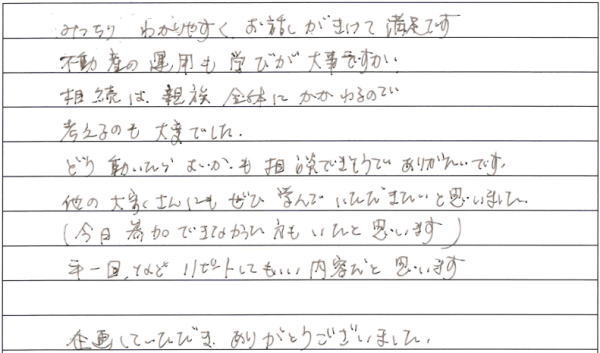 みっちり わかりやすく お話しがきけて 満足です
不動産の運用も 学びが大事ですが、
相続は、親族全体にかかわるので
考えるのも 大変でした。
どう動いたら よいか、も 相談できそうで ありがたいです。
他の大家さんにも ぜひ 学んで いただきたいと思いました。
(今日参加できなかった方も いたと思います)
年一回、など リピートしてもいい 内容だと 思います
企画していただき、ありがとうございました。